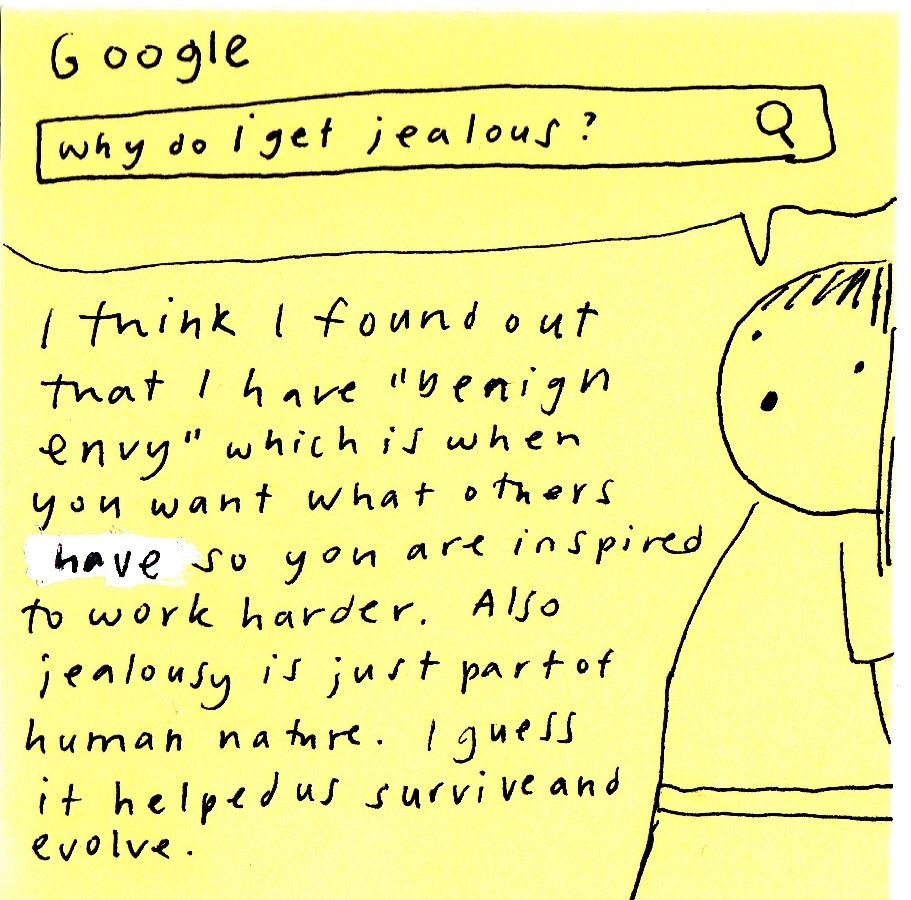 Google
why do i get jealous?
I think I found out
that I have "benign
envy" which is when
you want what others
have so you are inspired
to work harder. Also
jealousy is just part of
human nature. I guess
it helped us survive and
evolve.